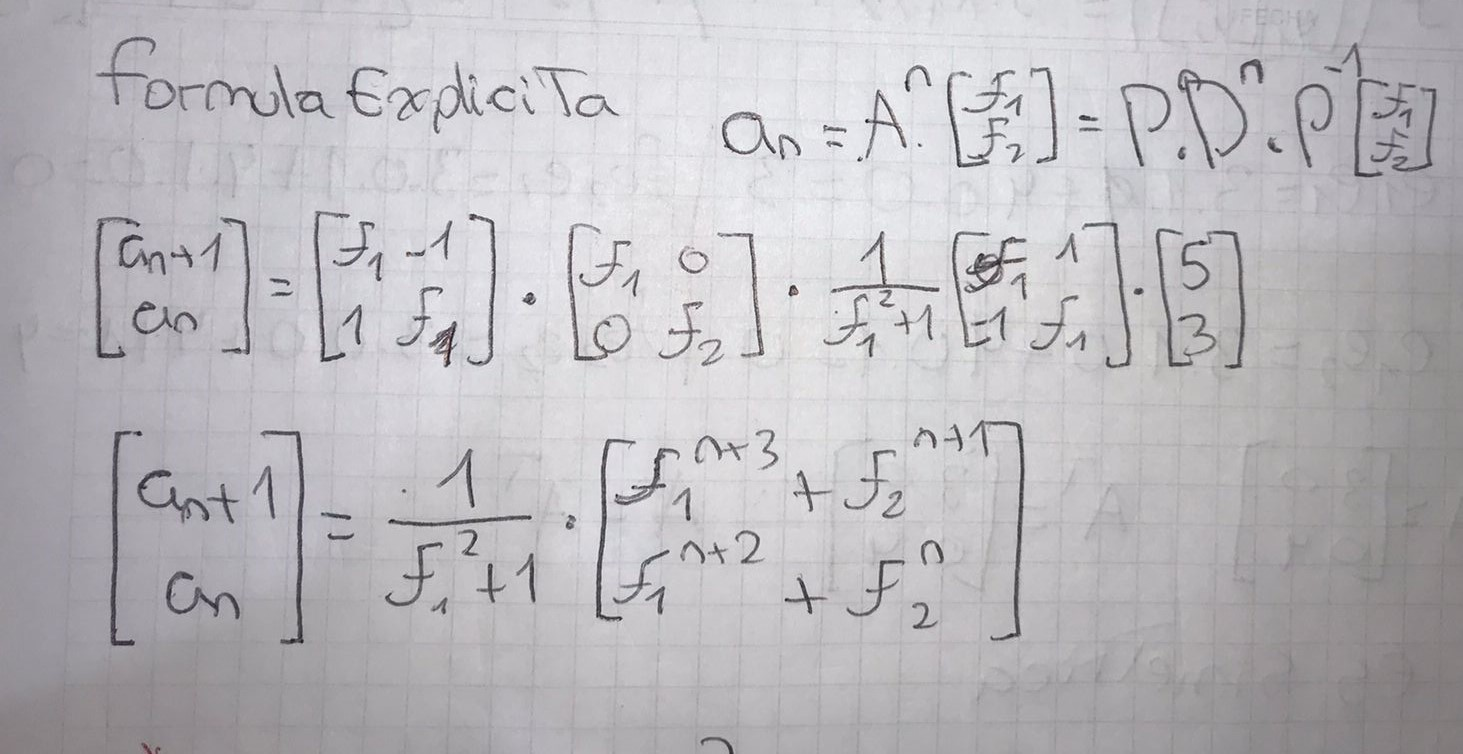 FECHA
formula ExpliciTa a_n = A^n · [f_1; f_2] = P.D^n.P^-1 [f_1; f_2]
[a_n+1; a_n] = [f_1 -1; 1 f_1] · [f_1 0; 0 f_2] · 1/(f_1^2+1) [f_1 1; -1 f_1] · [5; 3]
[a_n+1; a_n] = 1/(f_1^2+1) · [f_1^(n+3) + f_2^(n+1); f_1^(n+2) + f_2^n]